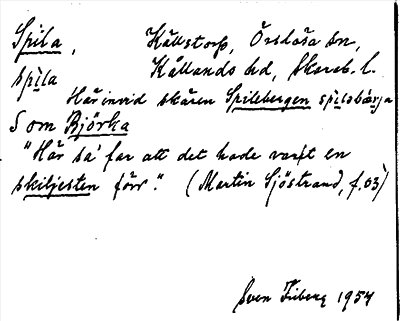 Spila, Källstorp, Örslösa sn,
spila Kållands hd, Skarab. l.
Här invid skären Spilebergen spilsbærja
Som Björka
"Här sa' far att det hade varit en
skiljesten förr." (Martin Sjöstrand, f. 03)
Sven Friberg 1954